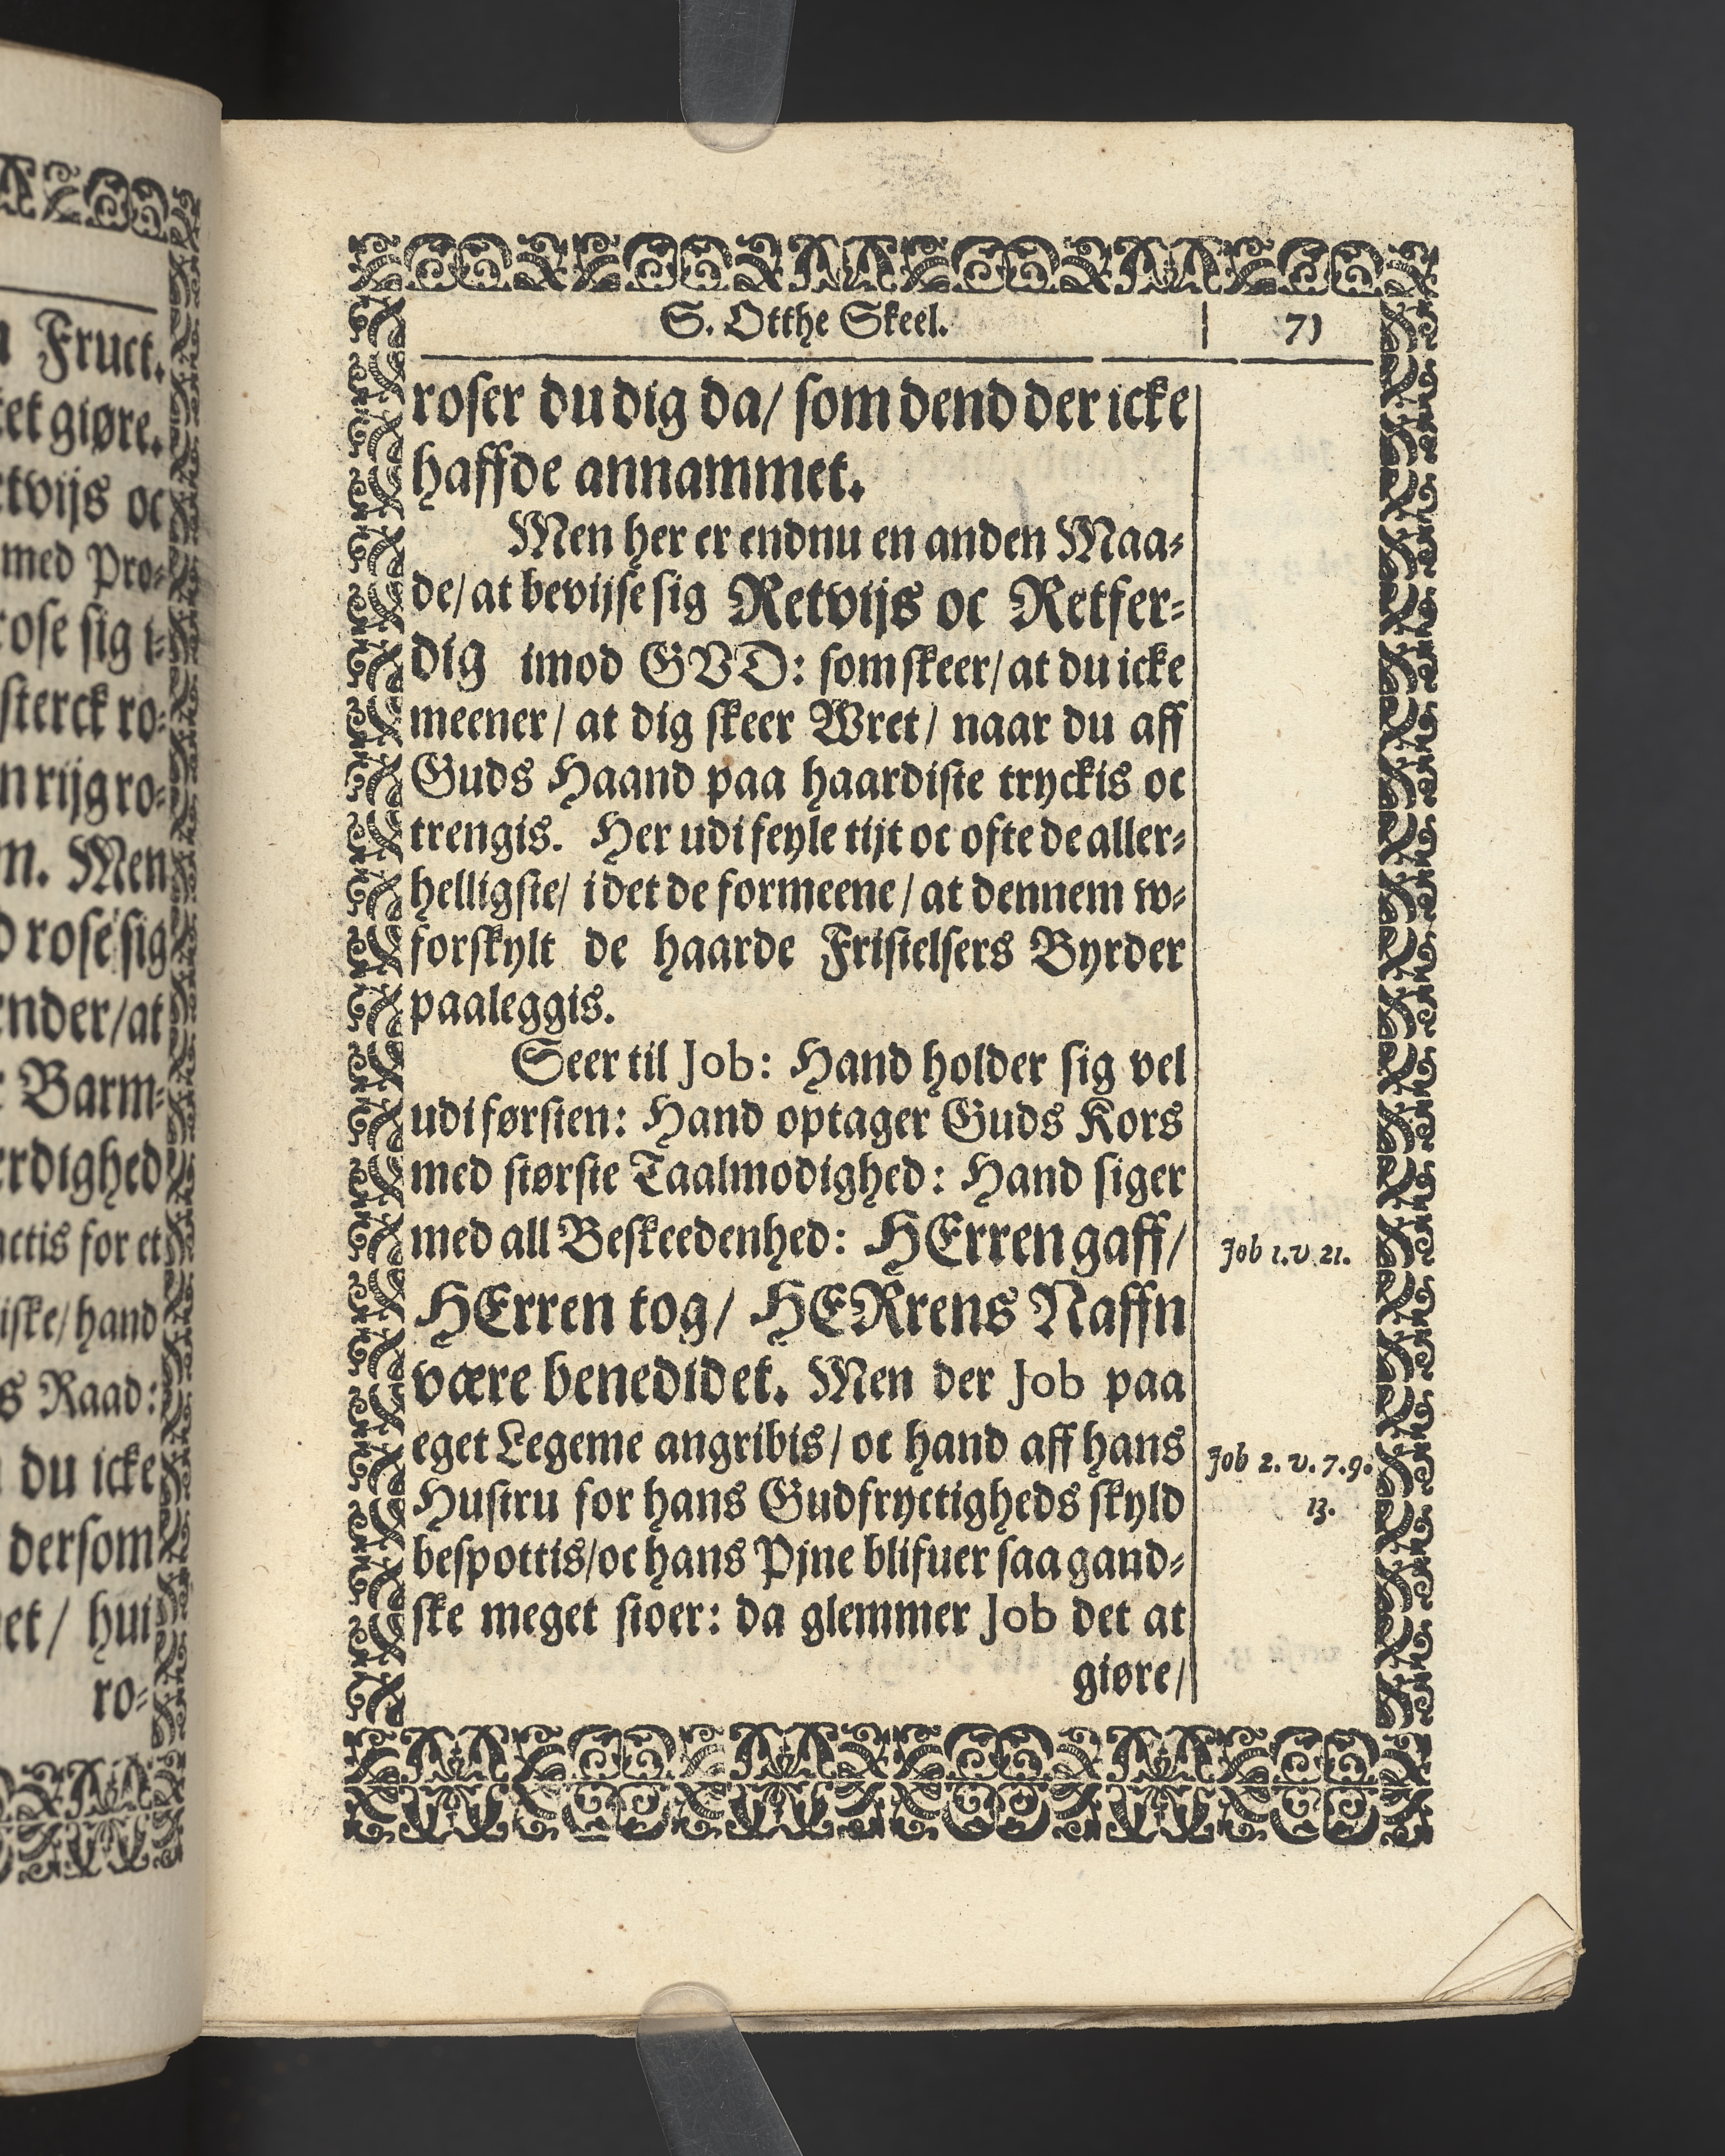 Fruct.
giøre.
oc
med Pro⸗
rose sig i⸗
sterck ro⸗
rijg ro⸗
Men
rose sig
at
Barm⸗
for et
hand
Raad:
du icke
dersom
hui
ro⸗
S. Otthe Skeel. | 71
roser du dig da/ som dend der icke
haffde annammet.
Men her er endnu en anden Maa⸗
de/ at bevijse sig Retvijs oc Retfer⸗
dig imod GVD: som skeer/ at du icke
meener/ at dig skeer Wret/ naar du aff
Guds Haand paa haardiste tryckis oc
trengis. Her udi feyle tijt oc ofte de aller⸗
helligste/ i det de formeene/ at dennem w⸗
forskylt de haarde Fristelsers Byrder
paaleggis.
Seer til Job: Hand holder sig vel
udi førsten: Hand optager Guds Kors
med største Taalmodighed: Hand siger
med all Beskeedenhed: HErren gaff/
Job 1. v. 21.
HErren tog/ HERrens Naffn
være benedidet. Men der Job paa
eget Legeme angribis/ oc hand aff hans
Job 2. v. 7. 9.
Hustru for hans Gudfryctigheds skyld
13.
bespottis/ oc hans Pjne blifuer saa gand⸗
ske meget stoer: da glemmer Job det at
giøre/